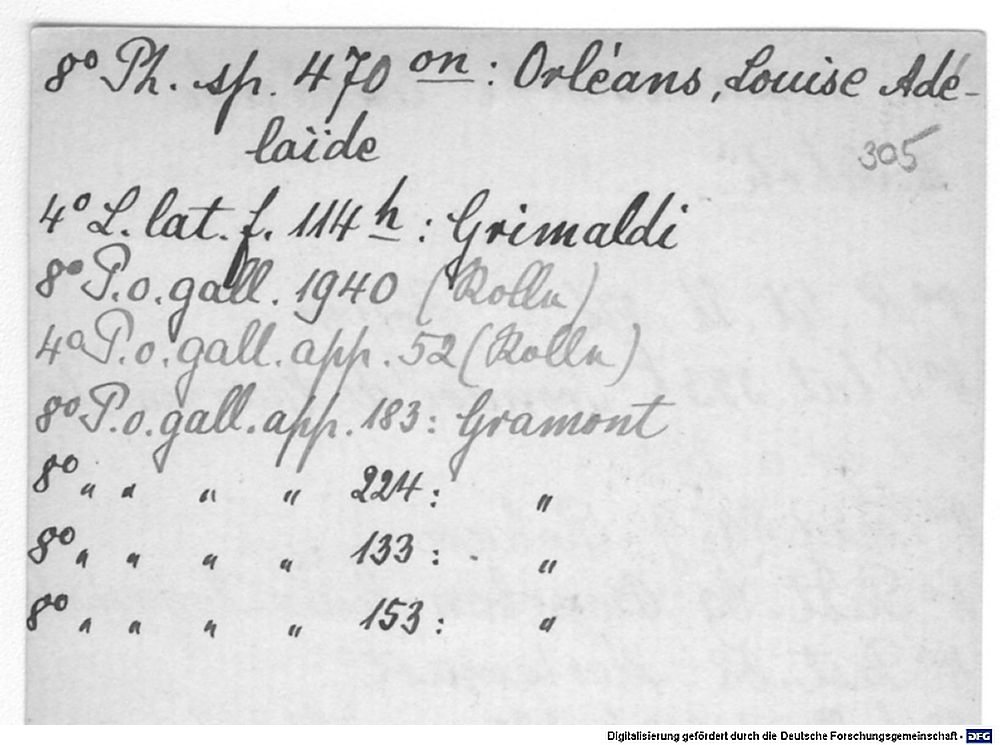 8° Ph. sp. 470 on: Orléans, Louise Adé-
laïde
305
4° L. lat. f. 114 h: Grimaldi
8° P.o. gall. 1940 (Rolln)
4° P.o. gall. app. 52 (Rolln)
8° P.o. gall. app. 183: Gramont
8° " " " " 224: "
8° " " " " 133: "
8° " " " " 153: "
Digitalisierung gefördert durch die Deutsche Forschungsgemeinschaft - DFG